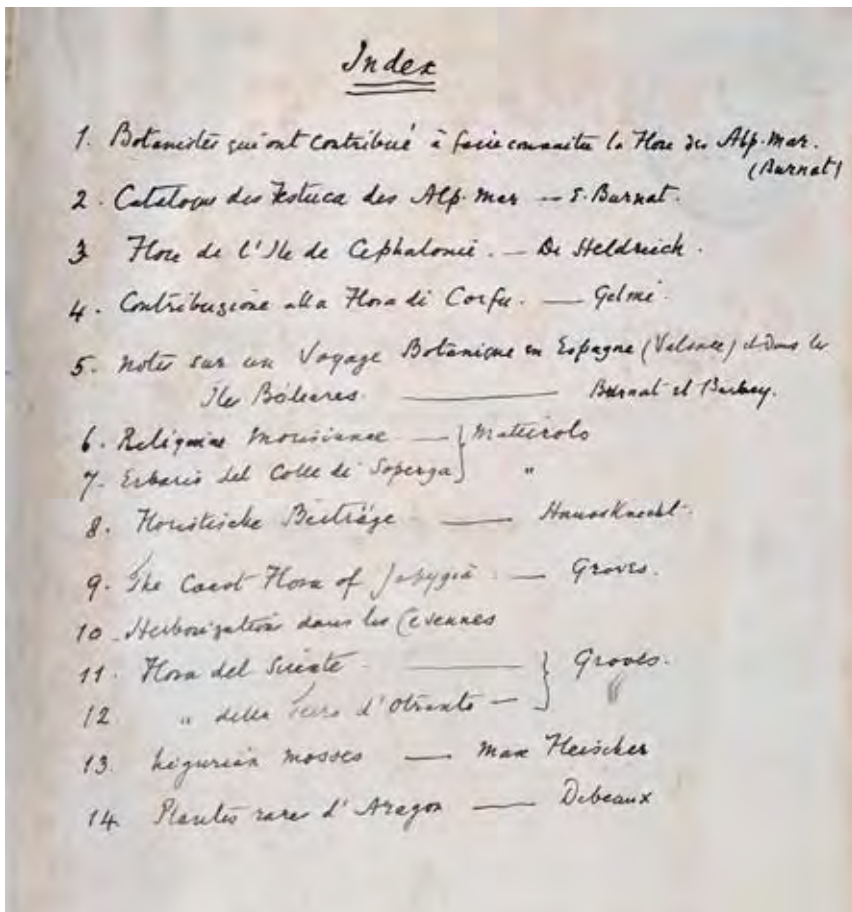 Index
1. Botanistes qui ont contribué à faire connaitre la Flore des Alp. Mar.
(Burnat)
2. Catalogue des Festuca des Alp. Mar — E. Burnat.
3 Flore de l'Ile de Cephalonie. — De Heldreich.
4. Contribuzione alla Flora di Corfu. — Gelmi.
5. Notes sur un Voyage Botanique en Espagne (Valence) et dans les
Iles Baleares. — Burnat et Barbey.
6. Reliquiae Morisianae — } Mattirolo
7. Erbario del Colle di Soperga } "
8. Floristische Beiträge — Hausknecht.
9. The Coast Flora of Japygia. — Groves.
10. Herborizations dans les Cevennes
11. Flora del — } Groves.
12 " della Terra d'Otranto — } "
13. Ligurian Mosses — Max Fleischer
14. Plantes rares d'Aragon — Debeaux